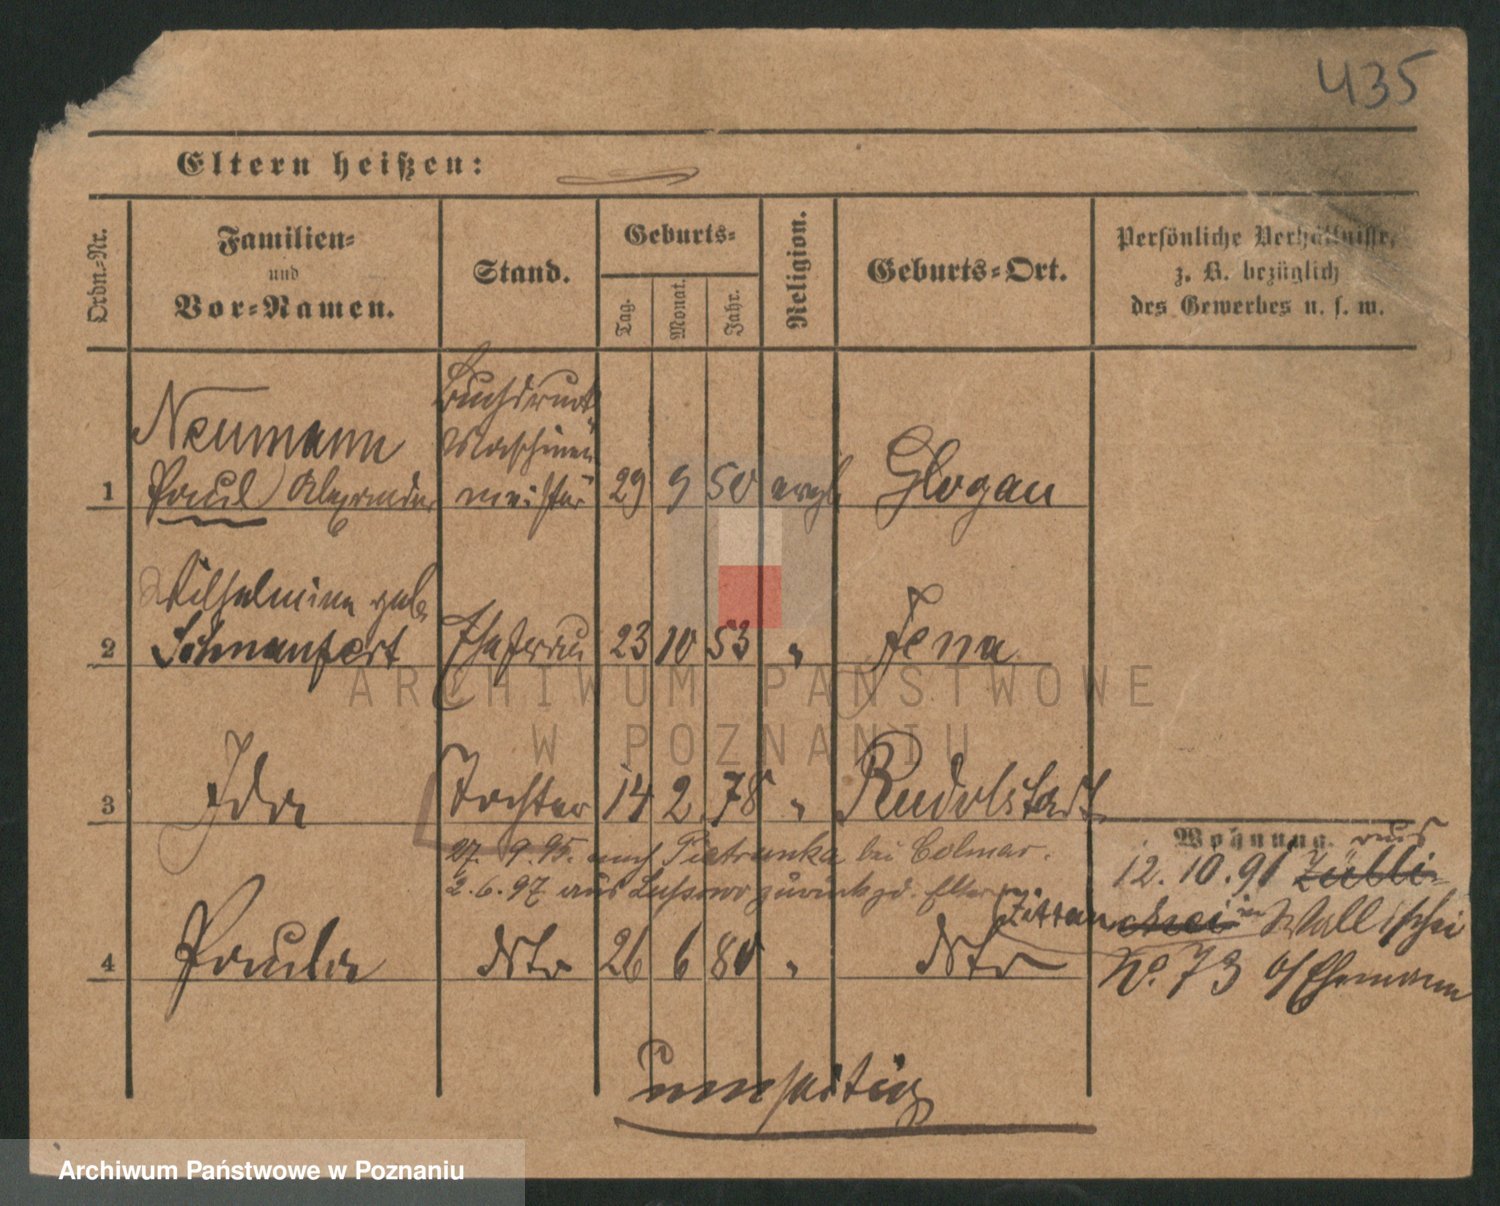 435
Eltern heißen:
Ordn.-Nr.
Familien-
und
Vor-Namen.
Stand.
Geburts-
Tag.
Monat.
Jahr.
Religion.
Geburts-Ort.
Persönliche Verhältnisse,
z. B. bezüglich
des Gewerbes u. s. w.
Buchdruck
Neumann Maschinen
1 Paul Alexander meister 29 9 50 evgl Glogau
Wilhelmine geb.
2 Schnaufert Ehefrau 23 10 53 " Jena
3 Ida Tochter 14 2 78 " Rudolstadt
27. 9. 95. nach Pietrunka bei Colmar.
2. 6. 97 aus zurück zd. Eltern.
4 Paula dto 26 6 80 " dto
Wohnung. aus
12. 10. 91
in Wallischei
No. 73 b/ Ehemann
umseitig
ARCHIWUM PAŃSTWOWE
W POZNANIU
Archiwum Państwowe w Poznaniu